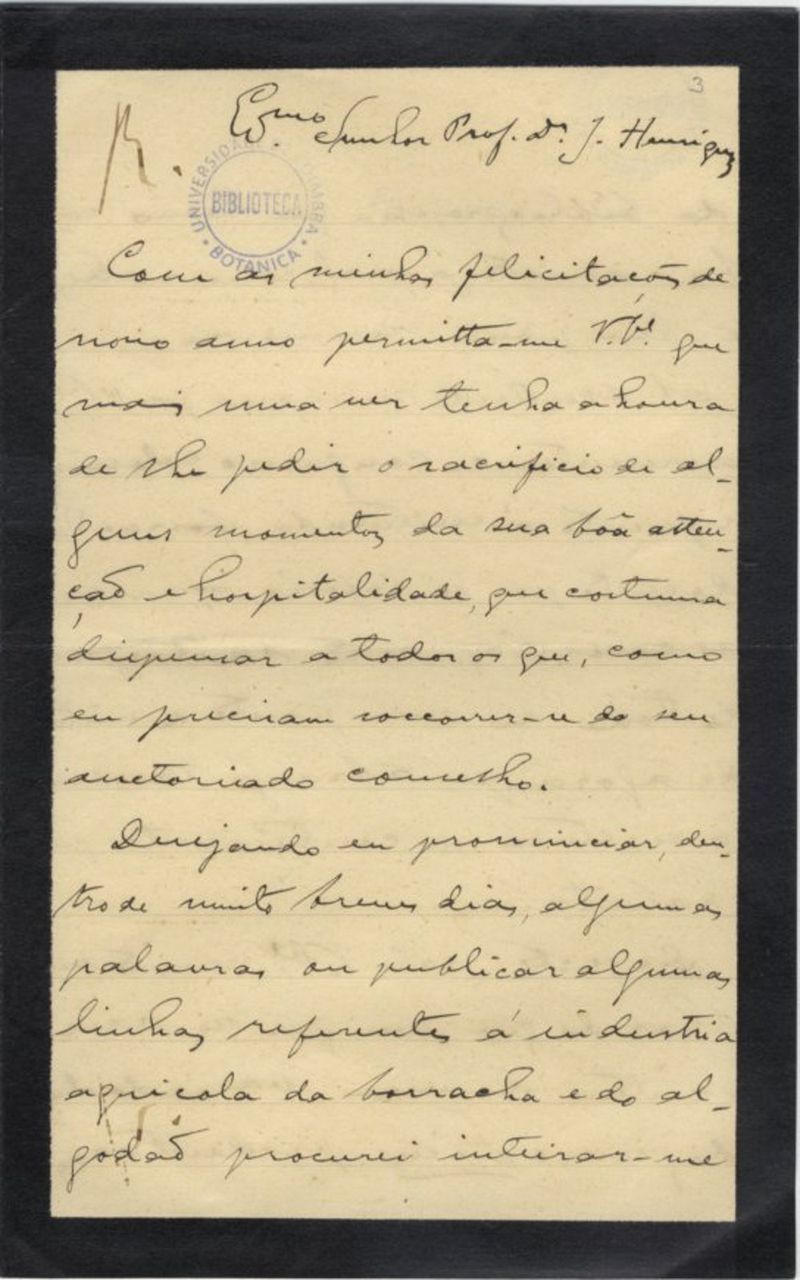 3
R.
Ex.mo Senhor Prof. Dr. J. Henriques
UNIVERSIDADE COIMBRA
BIBLIOTECA
BOTANICA
Com as minhas felicitações de
novo anno permitta-me V. Ex.ª que
mais uma vez tenha a honra
de lhe pedir o sacrificio de al-
guns momentos da sua bôa atten-
ção e hospitalidade, que costuma
dispensar a todos os que, como
eu precisam soccorrer-se do seu
auctorisado conselho.
Desejando eu pronunciar, den-
tro de muito breves dias, algumas
palavras ou publicar algumas
linhas referentes á industria
agricola da borracha e do al-
godão procurei inteirar-me